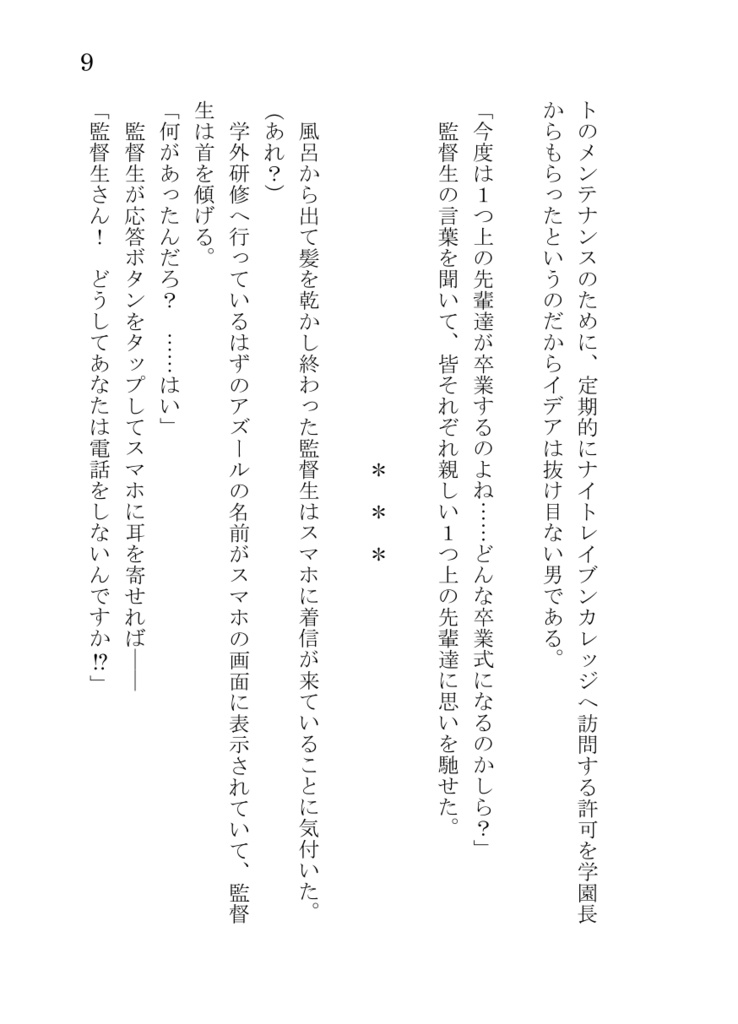 トのメンテナンスのために、定期的にナイトレイブンカレッジへ訪問する許可を学園長
からもらったというのだからイデアは抜け目ない男である。
「今度は１つ上の先輩達が卒業するのよね……どんな卒業式になるのかしら？」
監督生の言葉を聞いて、皆それぞれ親しい１つ上の先輩達に思いを馳せた。
＊　＊　＊
風呂から出て髪を乾かし終わった監督生はスマホに着信が来ていることに気付いた。
（あれ？）
学外研修へ行っているはずのアズールの名前がスマホの画面に表示されていて、監督
生は首を傾げる。
「何があったんだろ？　……はい」
監督生が応答ボタンをタップしてスマホに耳を寄せれば――
「監督生さん！　どうしてあなたは電話をしないんですか⁉」
9